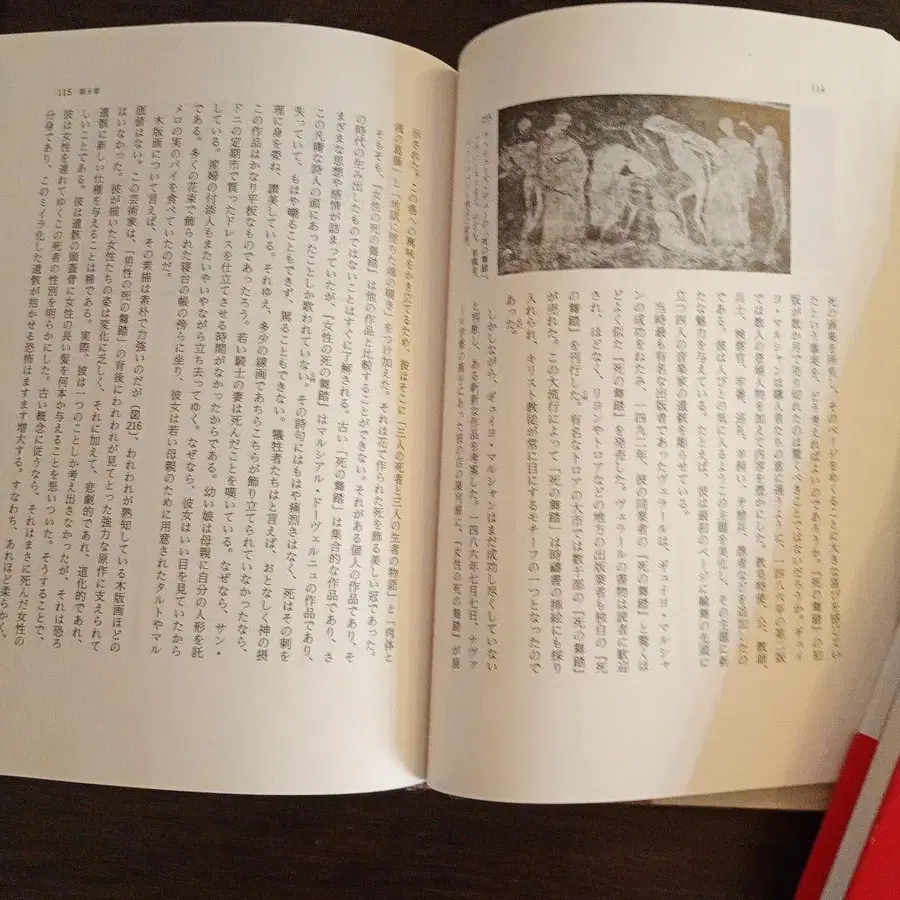 114
死の画集を飾し、そのページをめくることに大きな喜びを感じてい
たという事実を、どう考えればよいのであろうか。『死の舞踏』の初
版が数か月で売り切れたのは驚くべきことではないだろう。ギュイ
ヨ・マルシャンは購入者たちの意に適うように、一四八六年の第二版
では数人の登場人物を加えて内容を豊かにした。教皇特使、公、教師、
兵士、検察官、牢番、巡礼、羊飼い、矛槍兵、愚者などが追加したの
である。彼は人びとの気に入るように企画を美化し、その主題に新
たな魅力を与えている。たとえば、彼は最初のページに輪舞の先頭に
立つ四人の音楽家の遺骸を踊らせている。
当時最も有名な出版者であったヴェラールは、ギュイヨ・マルシャ
ンの成功をおたみ、一四九二年、彼の同業者の『死の舞踏』と驚くほ
どよく似た『死の舞踏』を発売した。ヴェラールの書物は読者に歓迎
され、ほどなく、リヨンやトロアなどの地方の出版業者も独自の『死
の舞踏』を刊行した。有名なトロアの大市では数千部の『死の舞踏』
が売れた。この大流行によって『死の舞踏』は時禱書の挿絵にも採り
入れられ、キリスト教徒が常に目にするモチーフの一つとなったので
あった。
しかしながら、ギュイヨ・マルシャンはまだ成功し尽くしていない
と判断し、ある斬新な作品を考案した。一四八六年七月七日、ナヴァ
の『女性の死の舞踏』が展
115 第8章
示された。この巻への興味をかき立てるため、彼はここに「三人の死者と三人の生者の物語」と「肉体と
魂の葛藤」と「地獄に堕ちた魂の嘆き」をつけ加えた。それは花で作られた死を飾る美しい冠であった。
そもそも、『女性の死の舞踏』は他の作品と比較することができない。それがある個人の作品であり、そ
の時代の生み出したものではないことはすぐに了解される。古い『死の舞踏』は集合的な作品であり、さ
まざまな思想や感情が詰まっていたが、『女性の死の舞踏』はマルシアル・ドーヴェルニュの作品であり、
この凡庸な詩人の頭にあったことしか歌われていない。その詩句にはもはや痛烈さはなく、死はその刺を
失っていて、もはや嘲ることもできず、罵ることもできない。犠牲者たちはと言えば、おとなしく神の摂
理に身を委ね、讃美している。それゆえ、多少の線画であちらこちらが飾り立てられているにしても、
この作品はかなり平板なものであったろう。若い騎士の妻は死んだことを嘆いている。なぜなら、サン・
ドニの定期市で買ったドレスを仕立てさせる時間がなかったからである。幼い娘は母親に自分の人形を託
している。産婦の付添人もまたいやいやながら立ち去ってゆく。なぜなら、彼女はいい目を見ていたから
である。多くの花束で飾られた寝台の帳の傍らに坐り、彼女は若い母親のために用意されたタルトやマル
メロの実のパイを食べていたのだ。
木版画について言えば、その素描は素朴で力強いのだが［図215］、われわれが熟知している木版画ほどの
価値はない。この芸術家は、『男性の死の舞踏』の背後にわれわれが見てとった強力な原作に支えられて
はいなかった。彼が描いた女性たちの姿は変化に乏しく、それに加えて、悲劇的であれ、道化的であれ、
遺骸に新しい仕種を与えることは稀である。実際、彼は一つのことしか考え出さなかったが、それは恐ろ
しいことである。彼は遺骸の頭蓋骨に女性の長い髪を何本か与えることを思いついた。そうすることで、
彼は女性を連れてゆくこの死者の性別を明らかにした。古い概念に従うなら、それはまさに死んだ女性の
分身であり、このミイラ化した遺骸が抱かせる恐怖はますます増大する。すなわち、あれほど柔らかく、